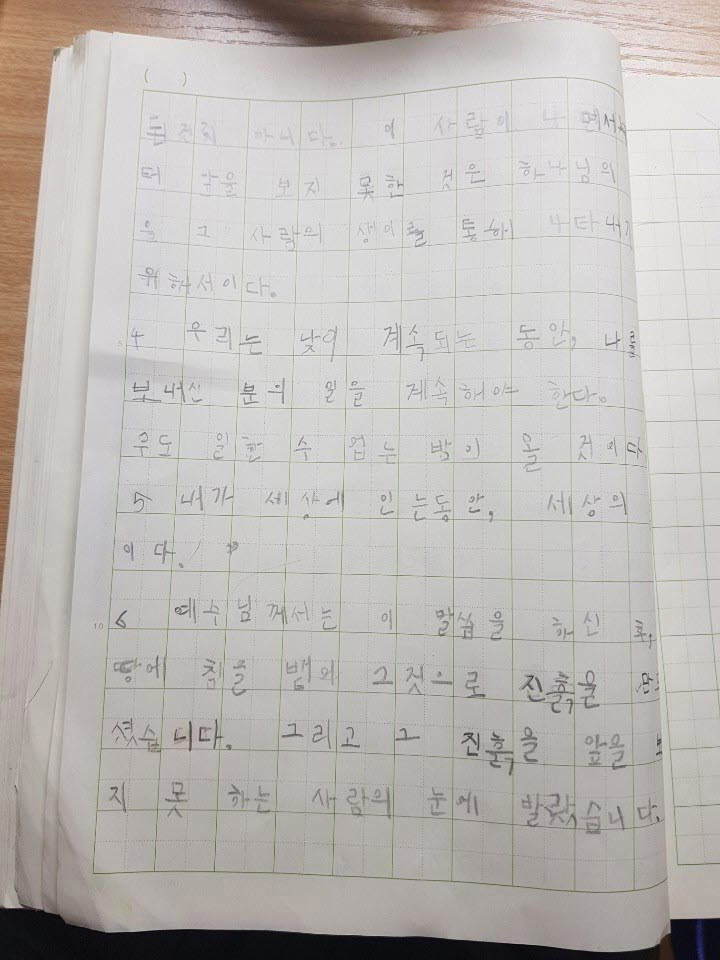 ( )
아니다. 이 사람이 나면서
터 눈을 보지 못한 것은 하나님의
을 그 사람의 생애를 통해 나타내기
위해서이다.
4 우리는 낮이 계속되는 동안, 나를
보내신 분의 일을 계속해야 한다.
일한 수 업는 밤이 올 것이다
5 내가 세상에 인는동안, 세상의
이다.
6 예수님께서는 이 말씀을 하신 후,
땅에 침을 뱁와 그것으로 진흙을
셨습니다. 그리고 그 진흙을 앞을 보
지 못 하는 사람의 눈에 발랏습니다.
5
10